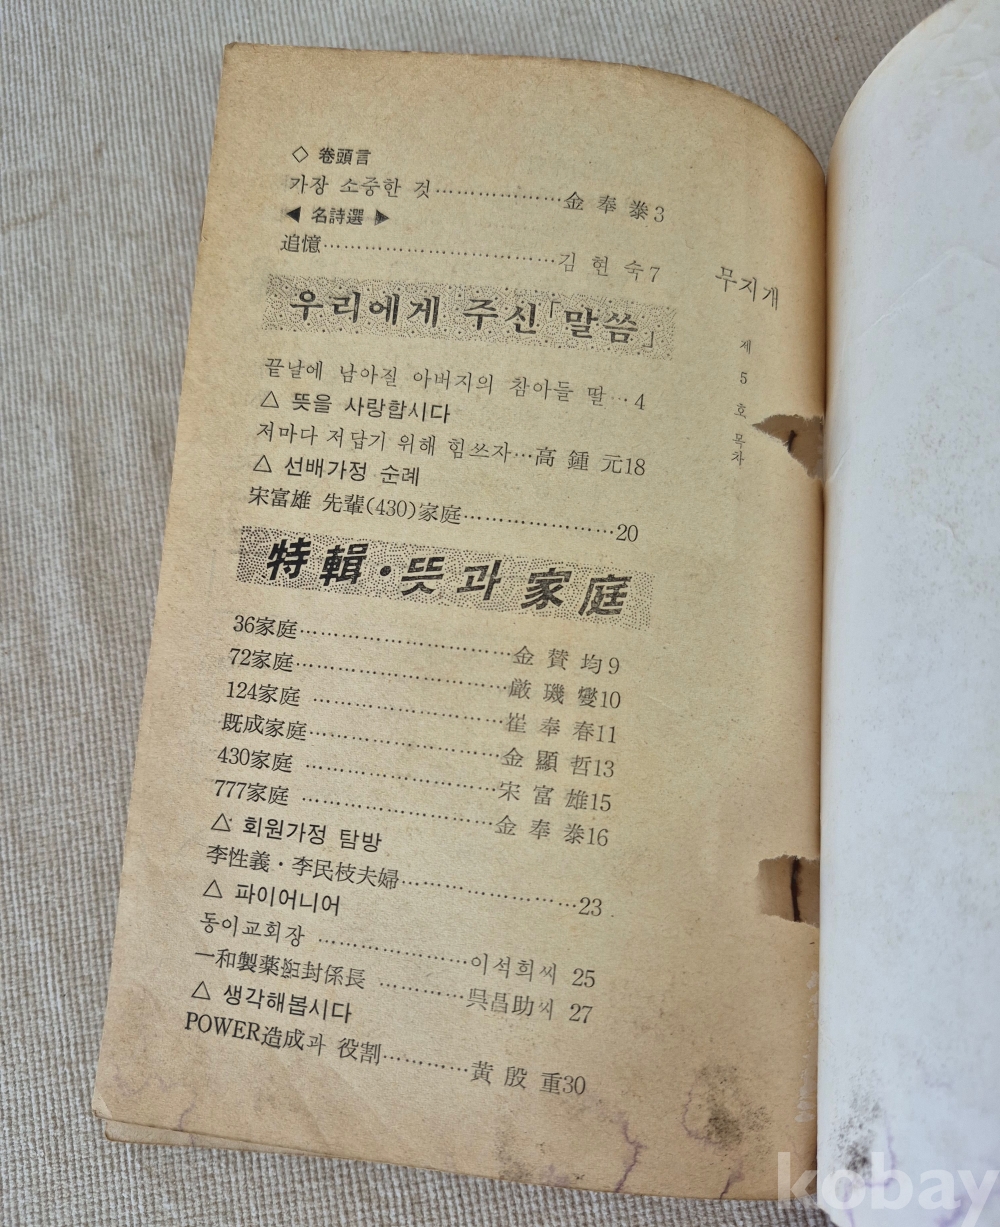 ◇ 卷頭言
가장 소중한 것………………金 奉 泰 3
◀ 名詩選 ▶
追憶……………………………김 현 숙 7
우리에게 주신「말씀」
끝날에 남아질 아버지의 참아들 딸… 4
△ 뜻을 사랑합시다
저마다 저답기 위해 힘쓰자…高 鍾 元18
△ 선배가정 순례
宋富雄 先輩(430)家庭…………………20
特輯·뜻과 家庭
36家庭…………………………金 賛 均 9
72家庭…………………………厳 璣 燮10
124家庭 ………………………崔 奉 春11
既成家庭………………………金 顯 哲13
430家庭 ………………………宋 富 雄15
777家庭 ………………………金 奉 泰16
△ 회원가정 탐방
李性義·李民枝夫婦……………………23
△ 파이어니어
동이교회장 …………………이석희씨 25
一和製薬 封係長 …………呉昌助씨 27
△ 생각해봅시다
POWER造成과 役割…………黃 殷 重30
무지개
제 5 호 목차
kobay